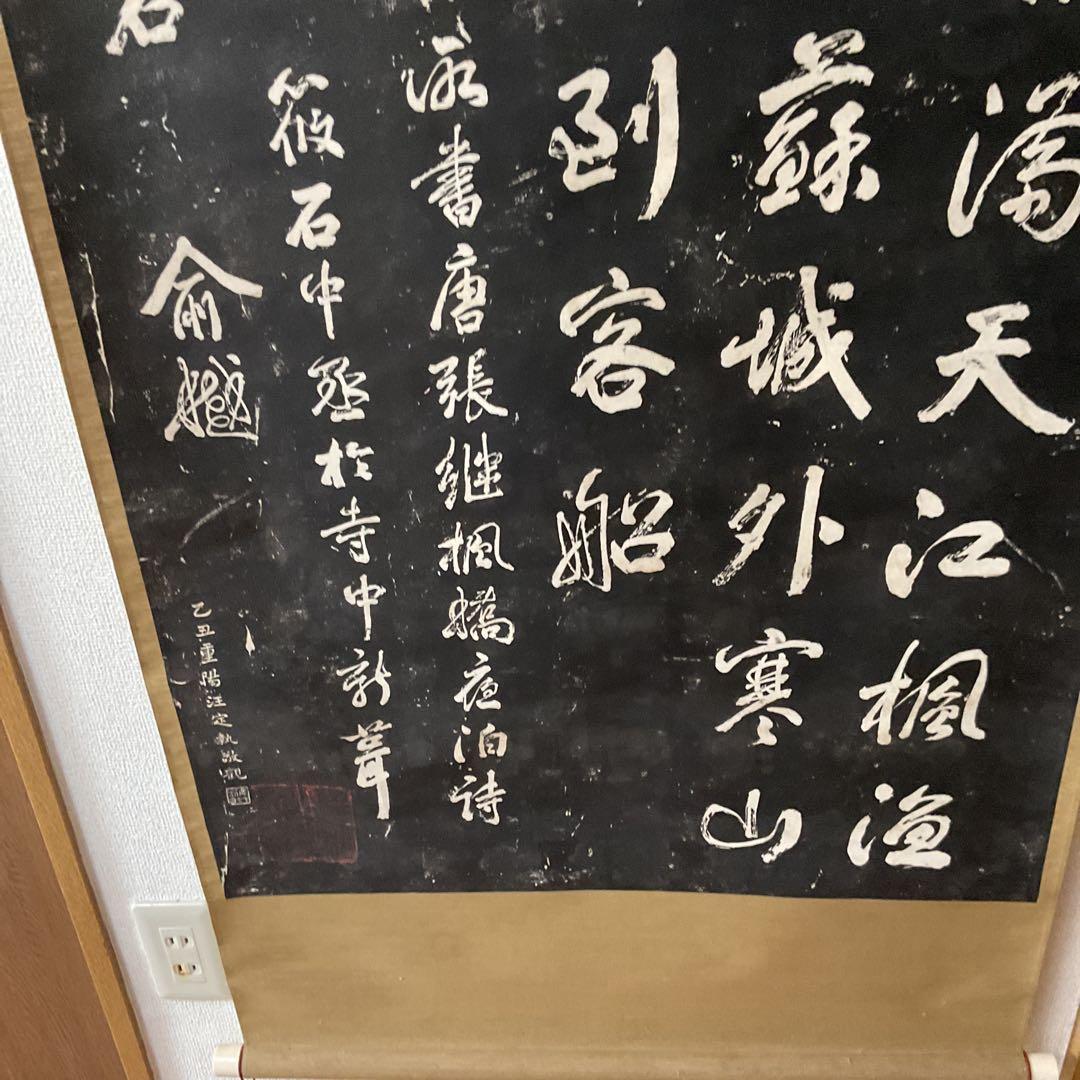 滿天江楓漁
蘇城外寒山
到客船
書唐張继楓橋夜泊詩
筱石中丞於寺中新葺
石
俞樾
乙丑重陽汪定執敬觀